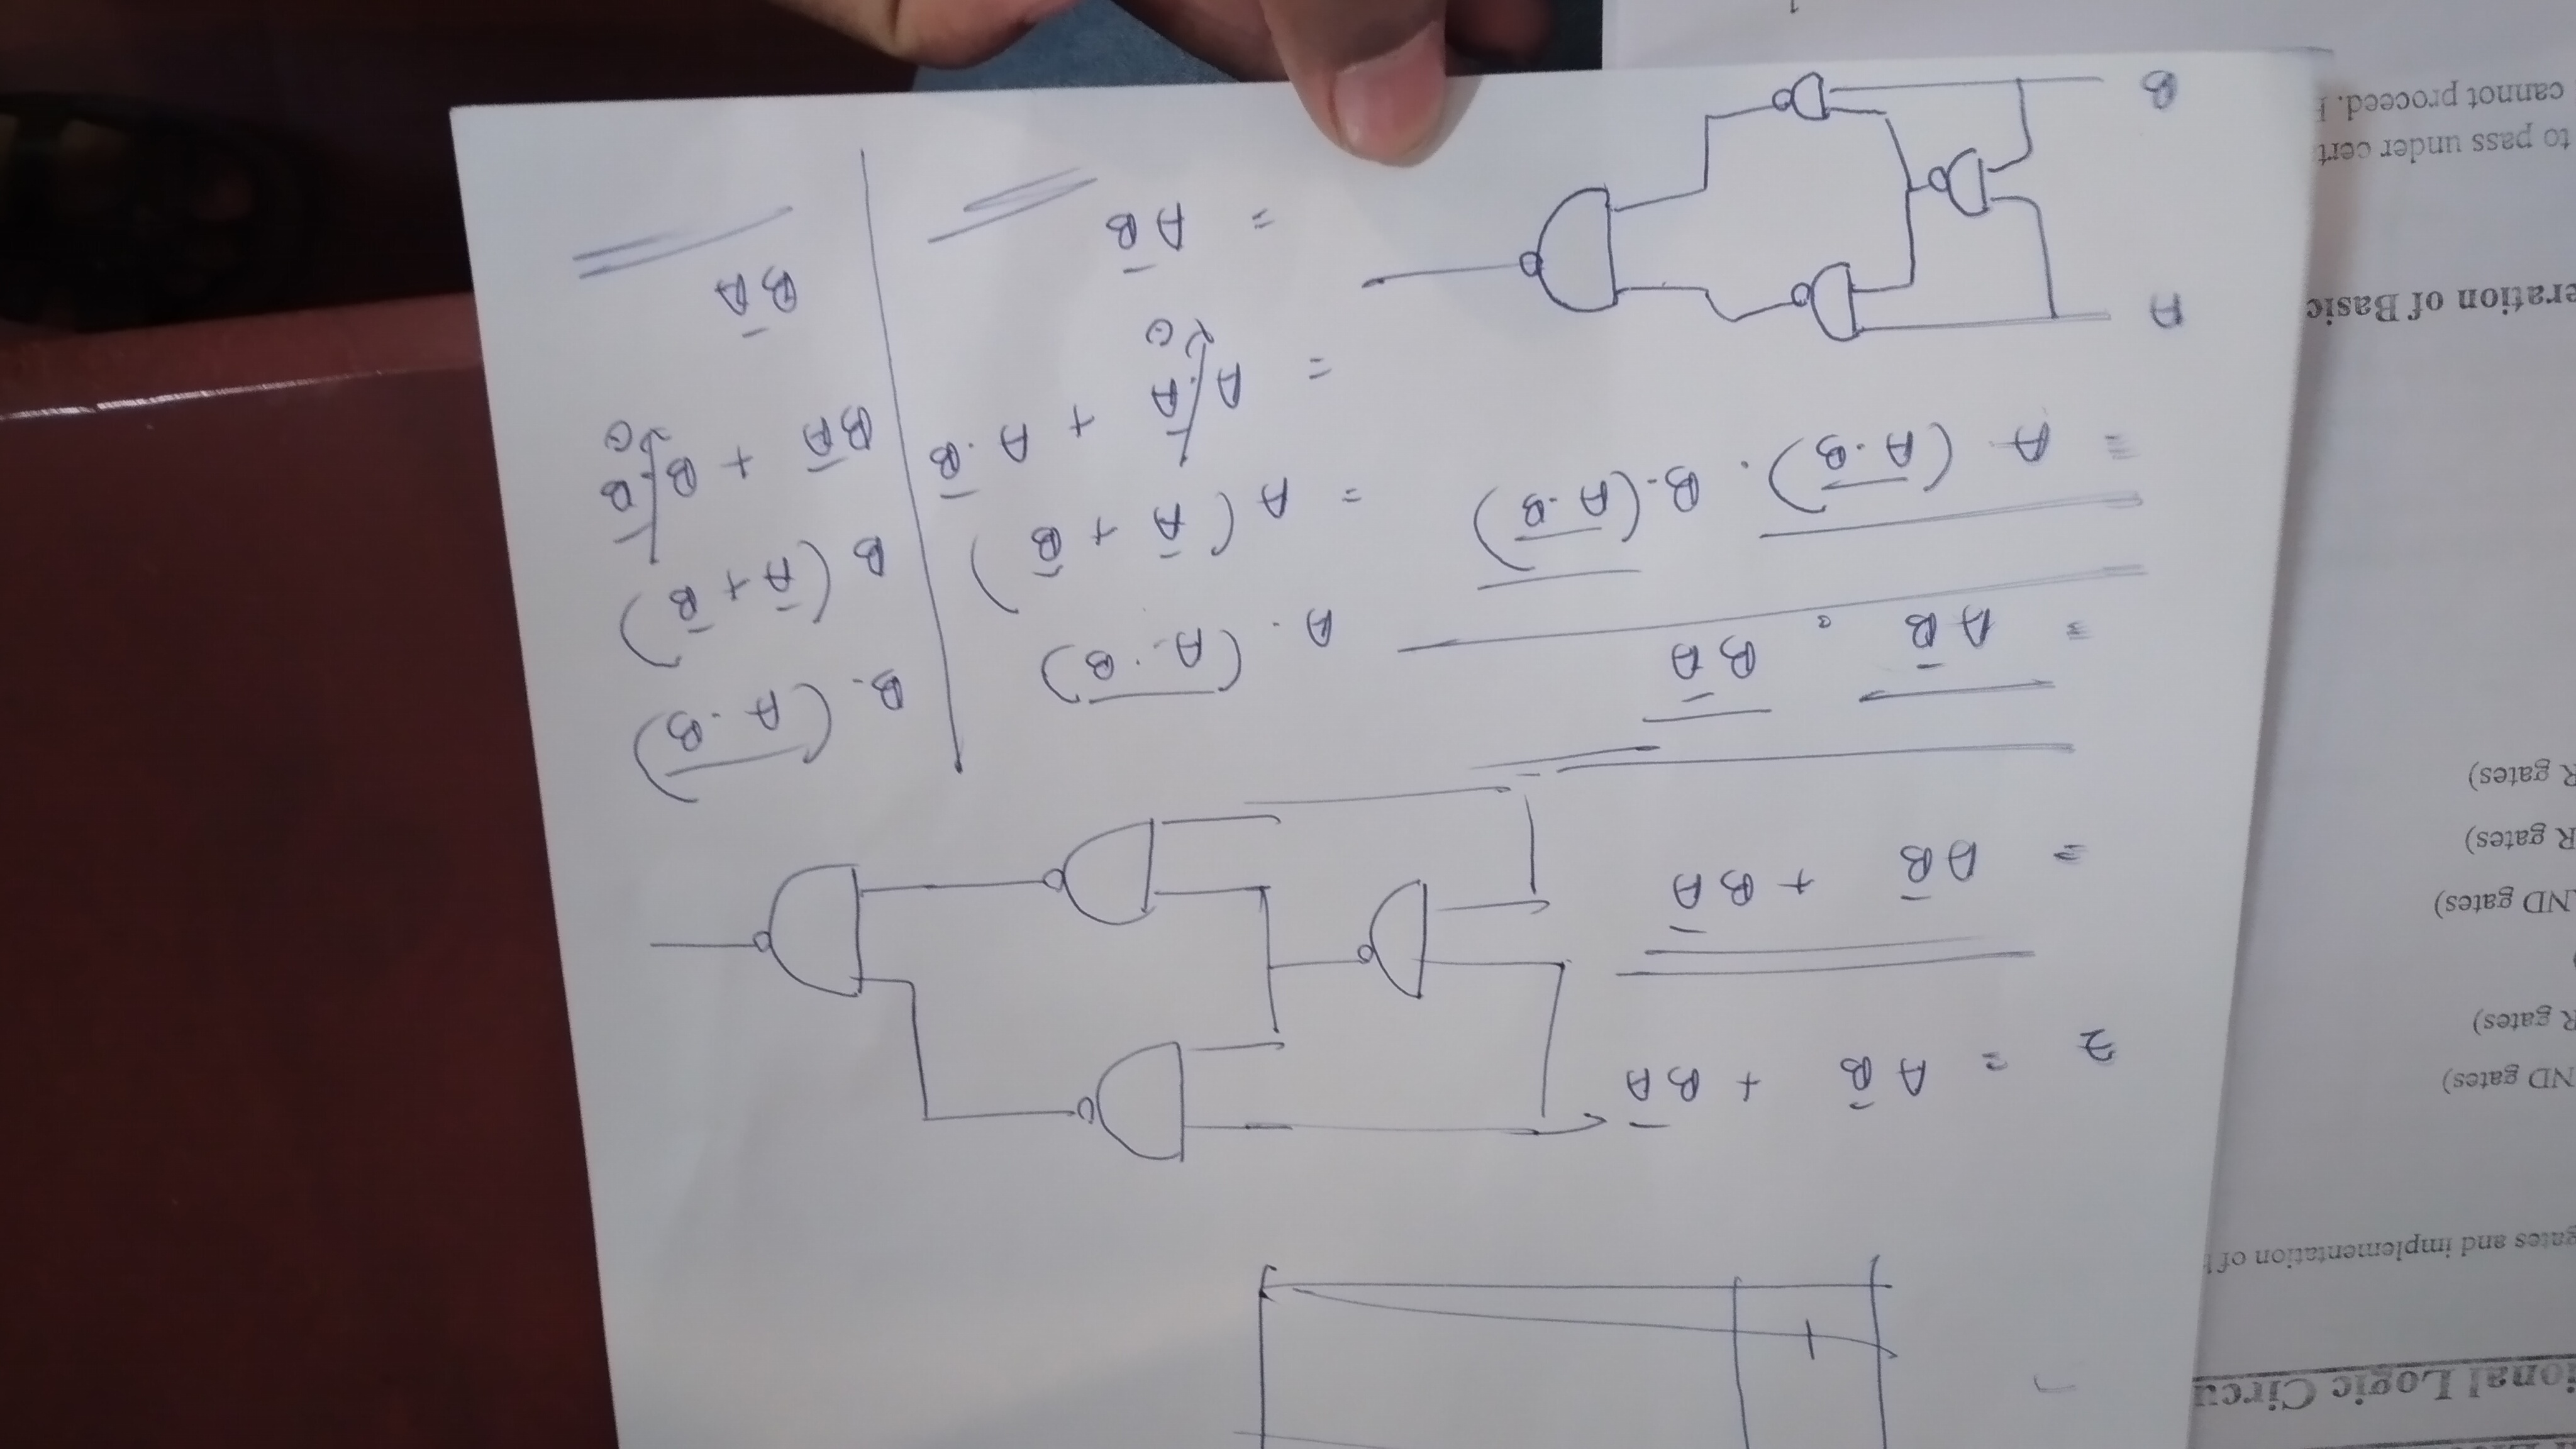 ional Logic Circu
gates and implementation of
ND gates)
R gates)
)
ND gates)
R gates)
R gates)
eration of Basic
to pass under cert
cannot proceed.
1
Z = A B̅ + B A̅
= A B̅ + B A̅
= A B̅ . B A̅
= A . (A . B) . B . (A . B)
A
B
A . (A . B)
= A ( A̅ + B̅ )
= A . A̅ + A . B̅
0
= A B̅
B . (A . B)
B ( A̅ + B̅ )
B A̅ + B . B̅
0
B A̅